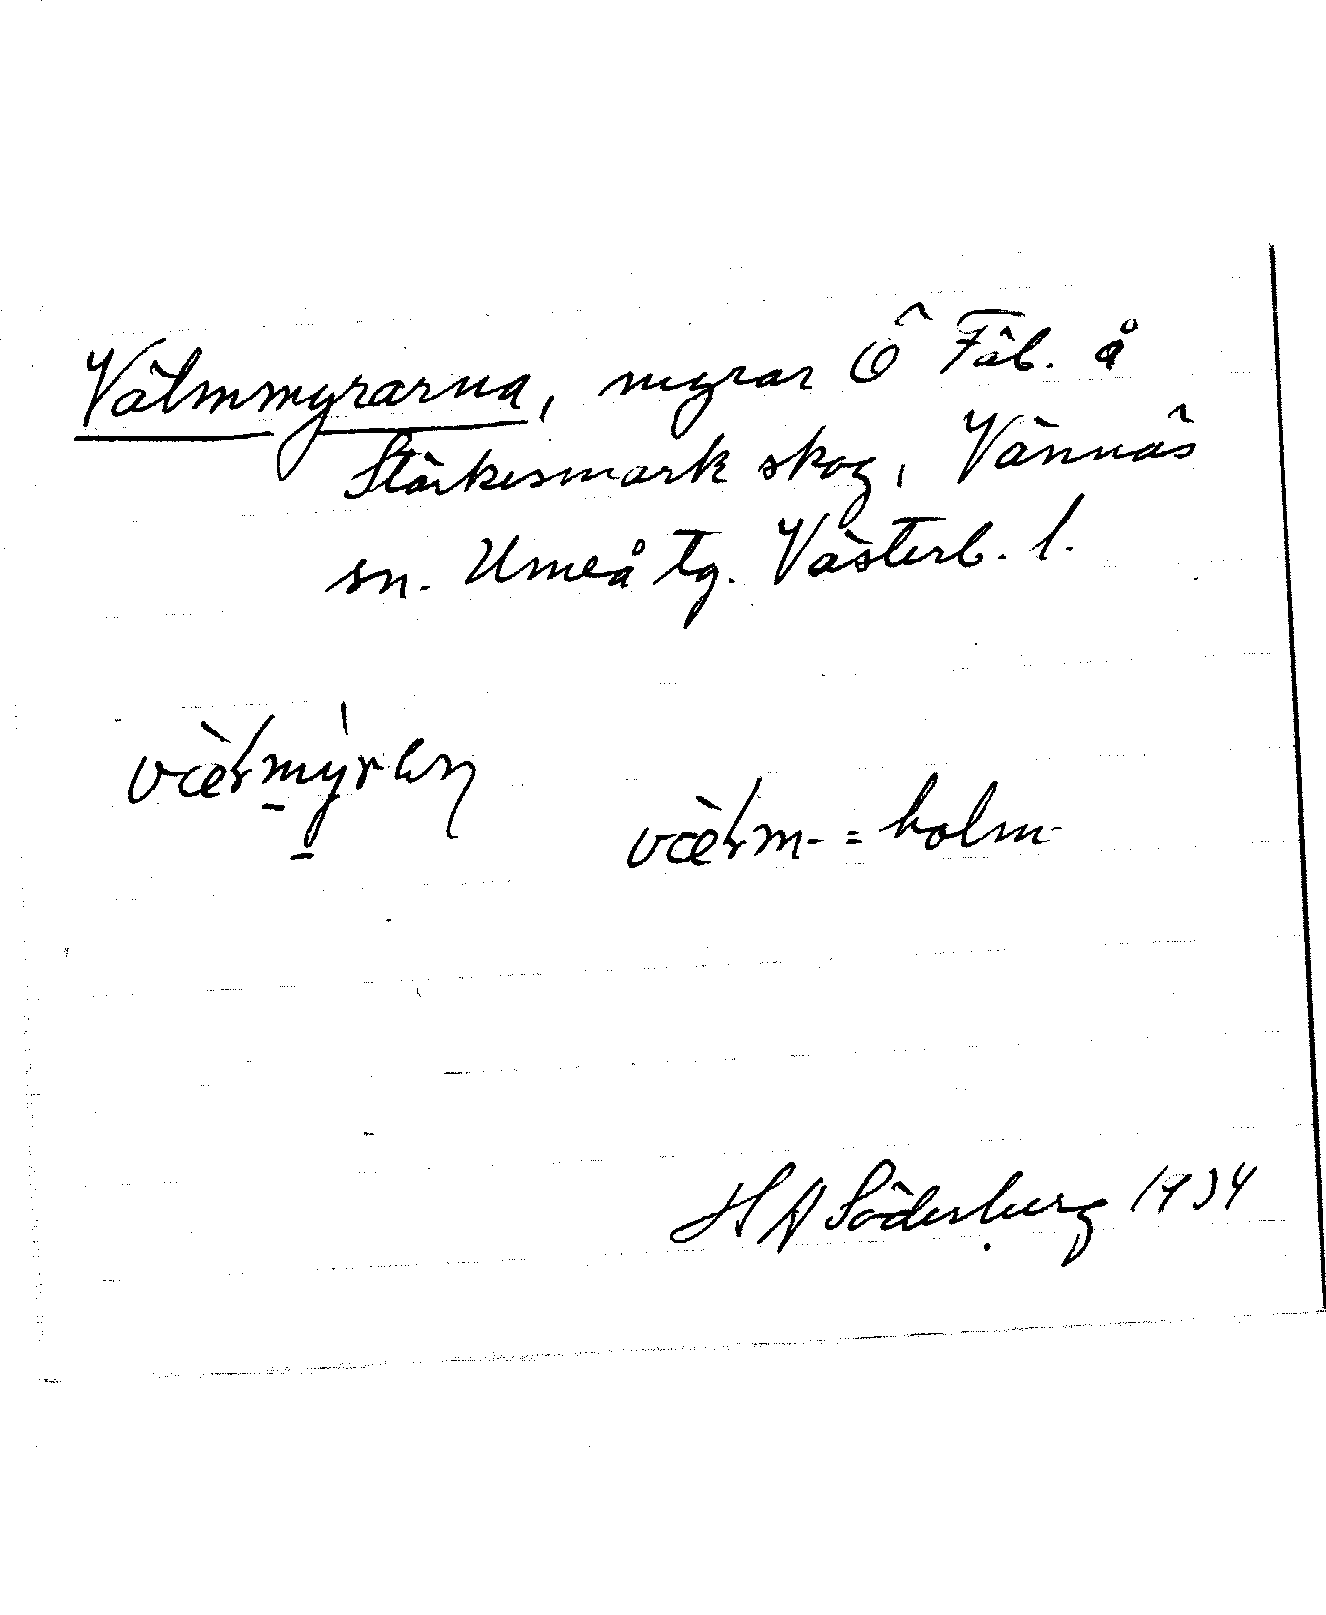 Välmmyrarna, myrar Ö Fäb. å
Stärkesmark skog, Vännäs
sn. Umeå tg. Västerb. l.
væ̀ɫm- = holm-
H A Söderberg 1934